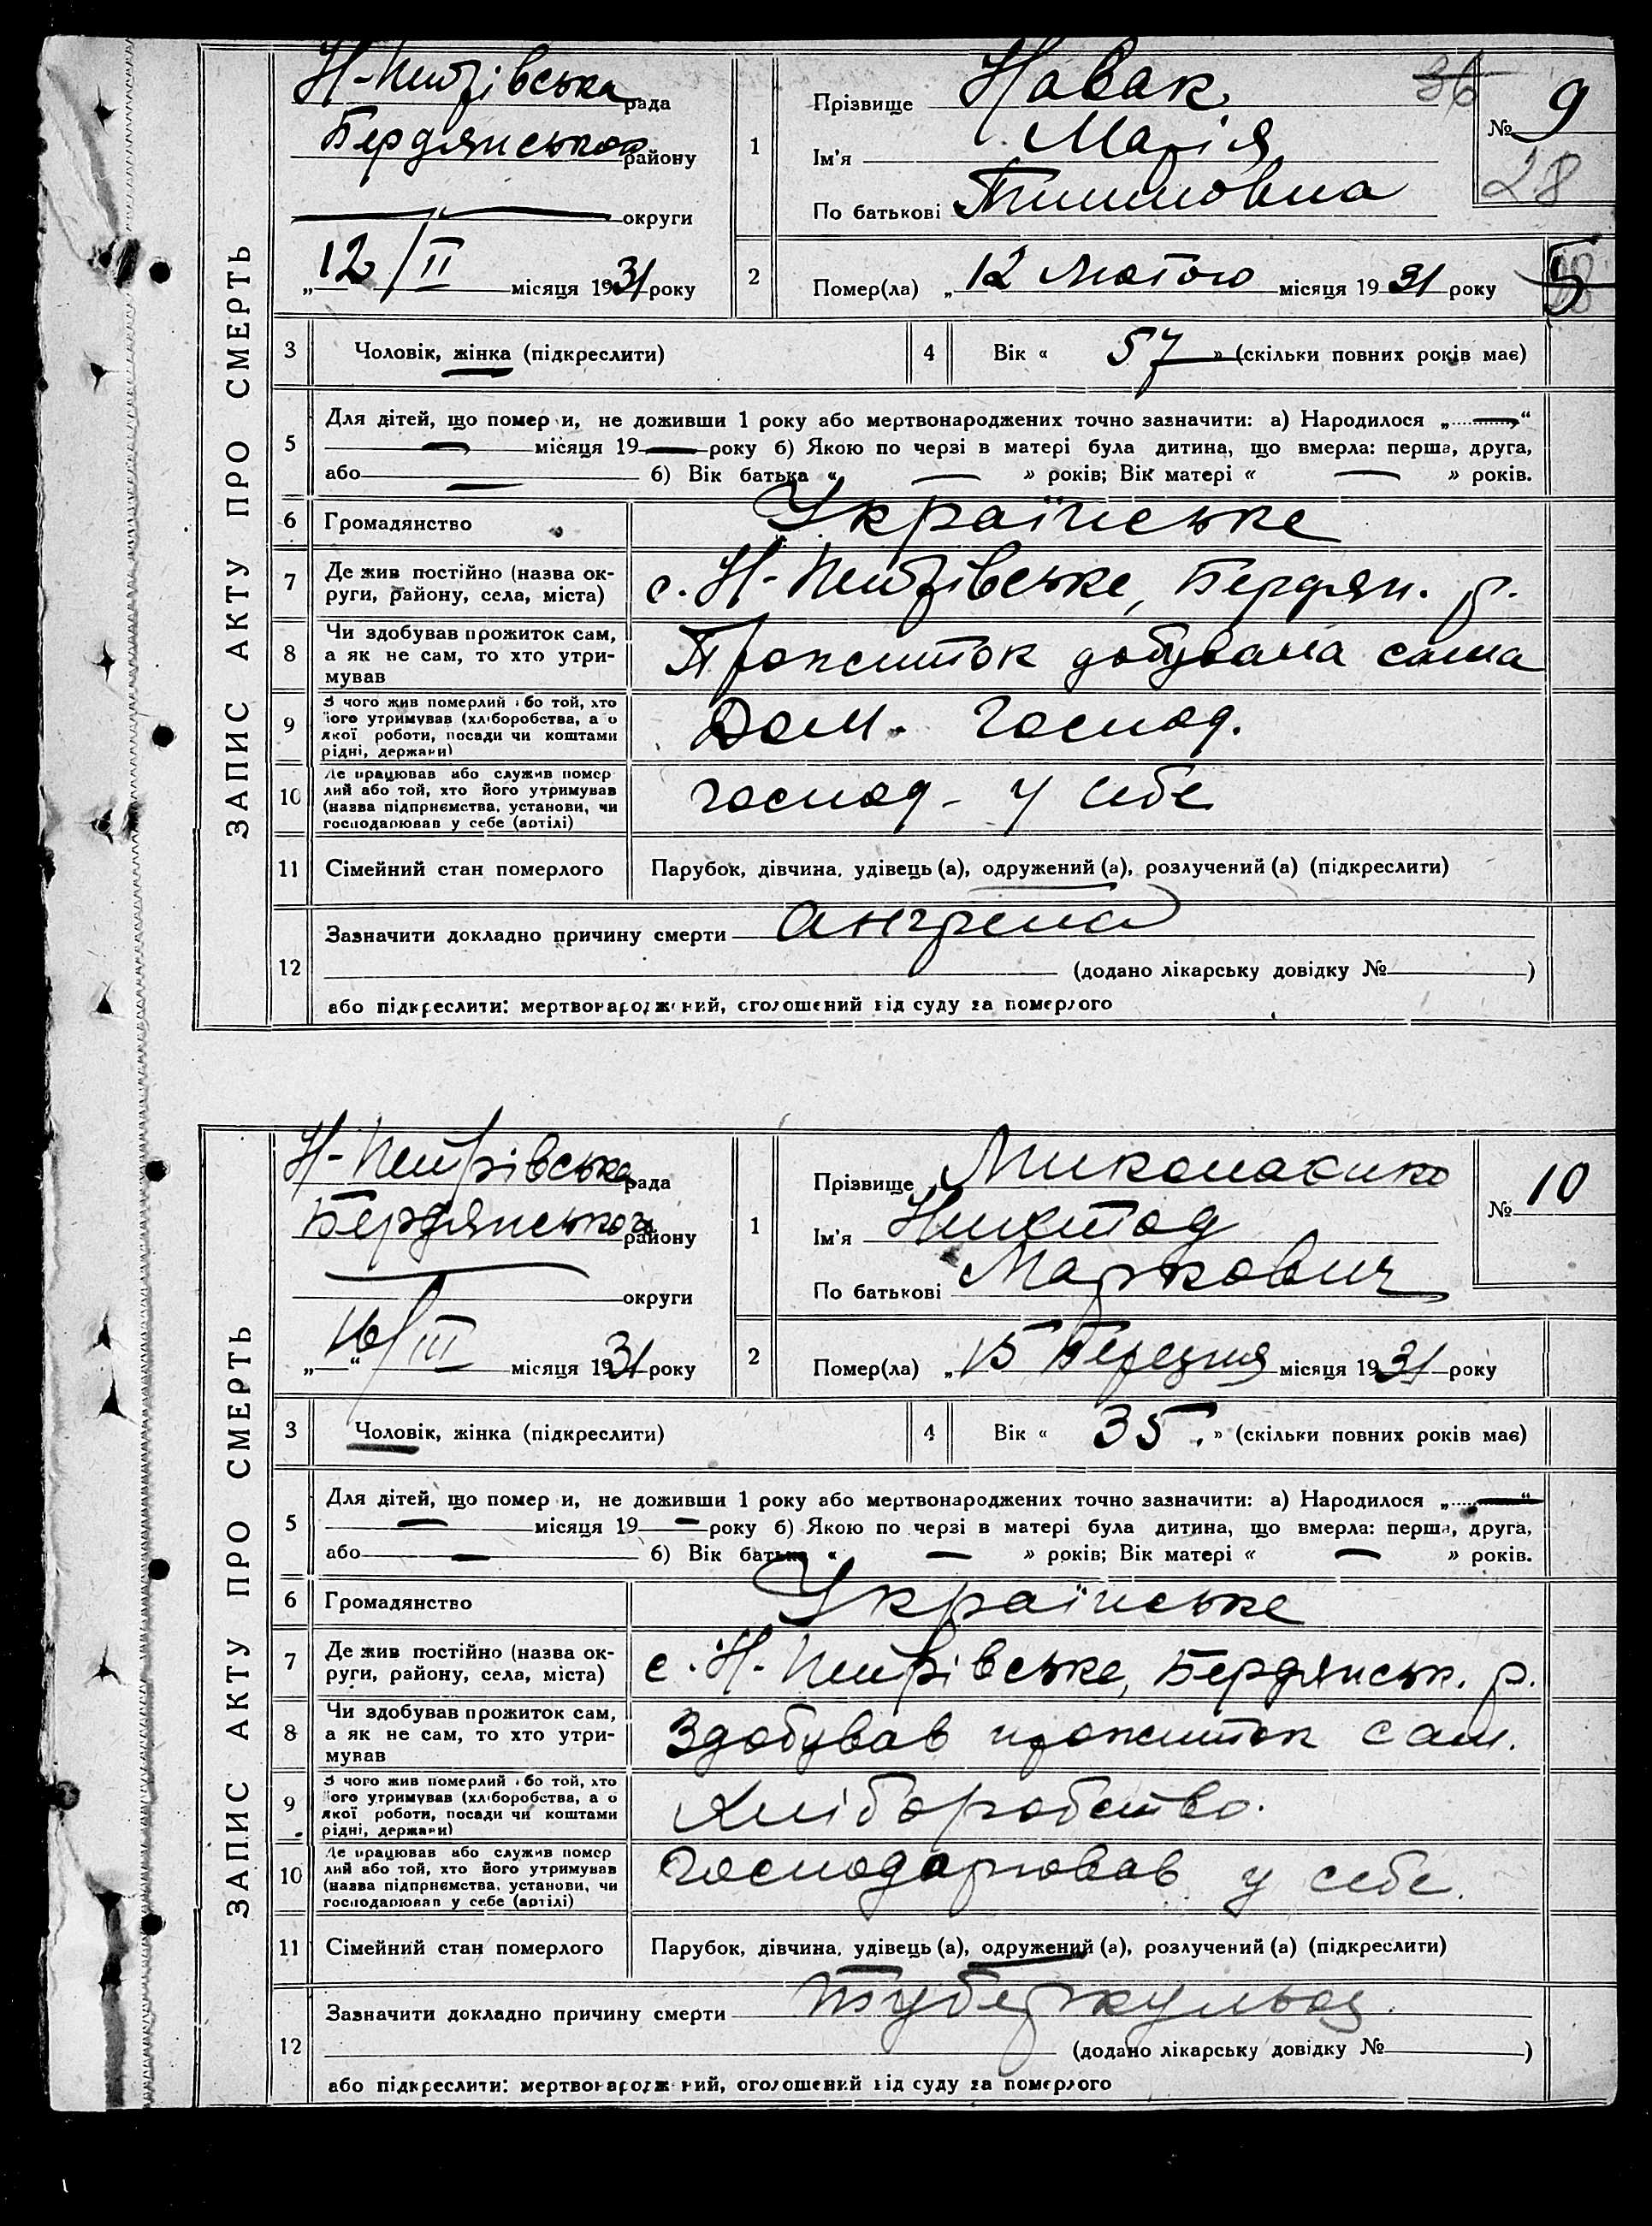 ЗАПИС АКТУ ПРО СМЕРТЬ
Н-Петрівська рада
Бердянського району
округи
„12/II місяця 1931 року
1
Прізвище Новак
Ім'я Марія
По батькові
36
№ 9
28
2
Помер(ла) „12 Лютого місяця 1931 року
5
3 Чоловік, жінка (підкреслити)
4 Вік « 57 » (скільки повних років має)
5 Для дітей, що помер и, не доживши 1 року або мертвонароджених точно зазначити: а) Народилося „ — “
— місяця 19 — року б) Якою по черзі в матері була дитина, що вмерла: перша, друга,
або — б) Вік батька « — » років; Вік матері « — » років.
6 Громадянство Українське
7 Де жив постійно (назва ок-
руги, району, села, міста) с. Н-Петрівське, Бердян. р.
8 Чи здобував прожиток сам,
а як не сам, то хто утри-
мував Прожиток добувала сама
9 З чого жив померлий або той, хто
його утримував (хліборобства, а о
якої роботи, посади чи коштами
рідні, держави) Дом. господ.
10 Де працював або служив помер
лий або той, хто його утримував
(назва підприємства, установи, чи
господарював у себе (артілі) господ- у себе
11 Сімейний стан померлого Парубок, дівчина, удівець (а), одружений (а), розлучений (а) (підкреслити)
12 Зазначити докладно причину смерти
(додано лікарську довідку № )
або підкреслити: мертвонароджений, оголошений від суду за померлого
ЗАПИС АКТУ ПРО СМЕРТЬ
Н-Петрівська рада
Бердянського району
округи
„16/III місяця 1931 року
1
Прізвище
Ім'я
По батькові Маркович
№ 10
2
Помер(ла) „15 Березня місяця 1931 року
3 Чоловік, жінка (підкреслити)
4 Вік « 35. » (скільки повних років має)
5 Для дітей, що помер и, не доживши 1 року або мертвонароджених точно зазначити: а) Народилося „ — “
— місяця 19 — року б) Якою по черзі в матері була дитина, що вмерла: перша, друга,
або — б) Вік батька « — » років; Вік матері « — » років.
6 Громадянство Українське
7 Де жив постійно (назва ок-
руги, району, села, міста) с. Н-Петрівське, Бердянськ. р.
8 Чи здобував прожиток сам,
а як не сам, то хто утри-
мував Здобував прожиток сам.
9 З чого жив померлий або той, хто
його утримував (хліборобства, а о
якої роботи, посади чи коштами
рідні, держави) Хліборобство.
10 Де працював або служив помер
лий або той, хто його утримував
(назва підприємства, установи, чи
господарював у себе (артілі) Господарював у себе.
11 Сімейний стан померлого Парубок, дівчина, удівець (а), одружений (а), розлучений (а) (підкреслити)
12 Зазначити докладно причину смерти Туберкульоз.
(додано лікарську довідку № )
або підкреслити: мертвонароджений, оголошений від суду за померлого